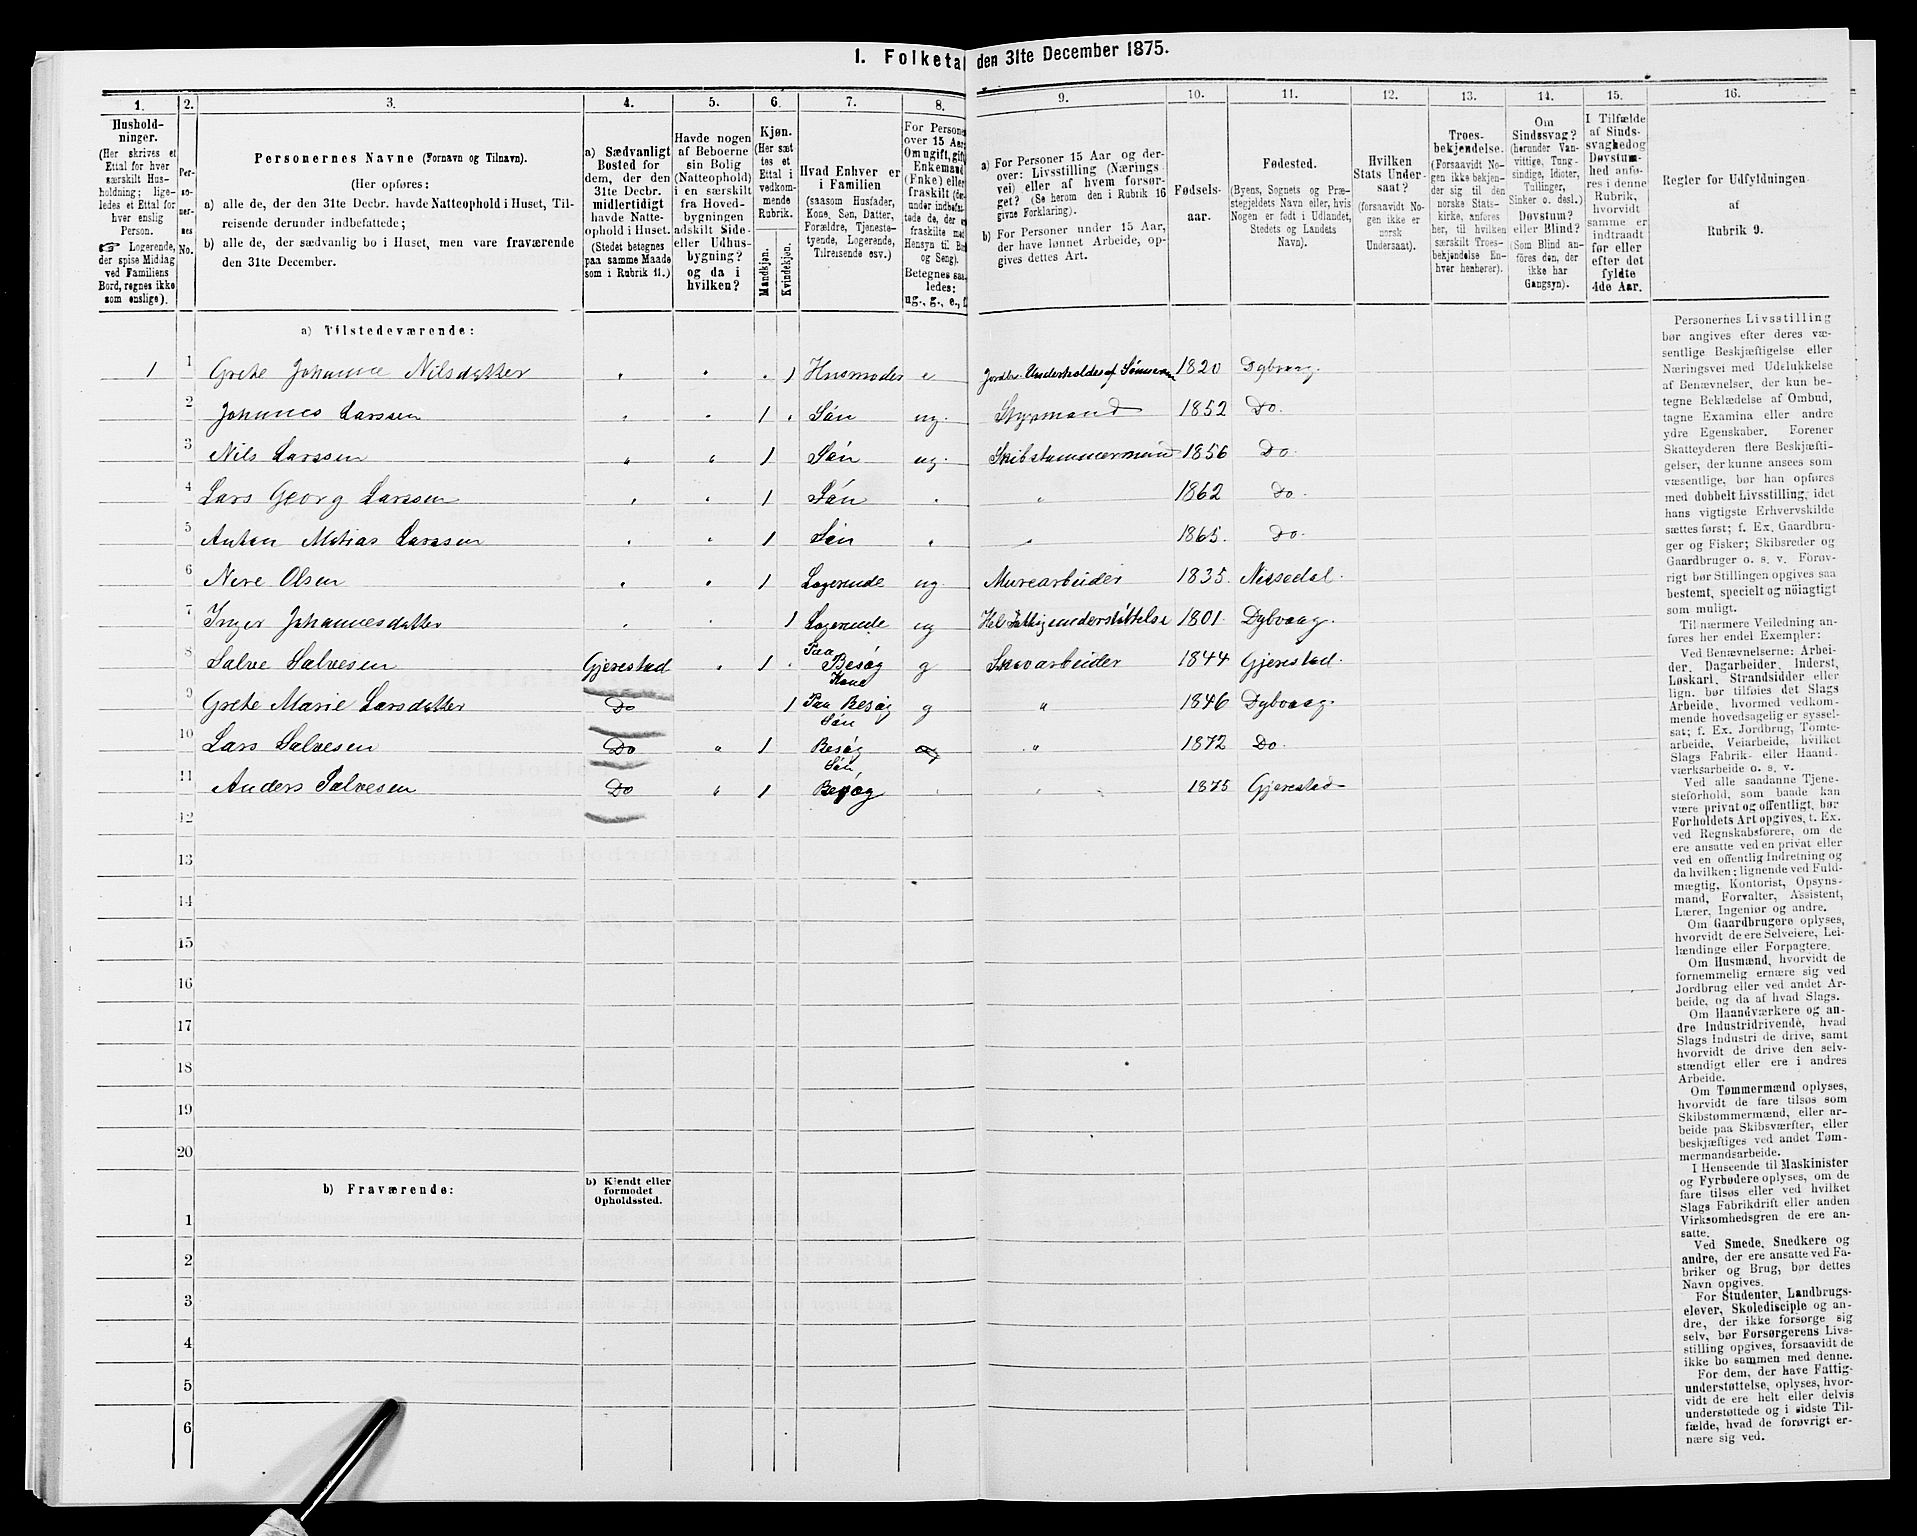 1. Folketal den 31te December 1875.
1. 2. 3. 4. 5. 6. 7. 8. 9. 10. 11. 12. 13. 14. 15. 16.
Hushold-
ninger.
(Her skrives et
Ettal for hver
særskilt Hus-
holdning; lige-
ledes et Ettal for
hver enslig
Person.
☞ Logerende,
der spise Middag
ved Familiens
Bord, regnes ikke
som enslige).
Per-
so-
ner-
nes
No.
Personernes Navne (Fornavn og Tilnavn).
(Her opføres:
a) alle de, der den 31te Decbr. havde Natteophold i Huset, Til-
reisende derunder indbefattede;
b) alle de, der sædvanlig bo i Huset, men vare fraværende
den 31te December.
a) Sædvanligt
Bosted for
dem, der den
31te Decbr.
midlertidigt
havde Natte-
ophold i Huset.
(Stedet betegnes
paa samme Maade
som i Rubrik 11.)
Havde nogen
af Beboerne
sin Bolig
(Natteophold)
i en særskilt
fra Hoved-
bygningen
adskilt Side-
eller Udhus-
bygning?
og da i
hvilken?
Kjøn.
(Her sæt-
tes et
Ettal i
vedkom-
mende
Rubrik.
Mandkjøn.
Kvindekjøn.
Hvad Enhver er
i Familien
(saasom Husfader,
Kone, Søn, Datter,
Forældre, Tjeneste-
tyende, Logerende,
Tilreisende osv.)
For Persone
over 15 Aar
Om ugift, gift
Enkemand
(Enke) eller
fraskilt
Betegnes saa-
ledes:
ug., g., e., f.
a) For Personer 15 Aar og der-
over: Livsstilling (Nærings-
vei) eller af hvem forsør-
get? (Se herom den i Rubrik 16
givne Forklaring).
b) For Personer under 15 Aar,
der have lønnet Arbeide, op-
gives dettes Art.
Fødsels-
aar.
Fødested.
(Byens, Sognets og Præ-
stegjeldets Navn eller, hvis
Nogen er født i Udlandet,
Stedets og Landets
Navn).
Hvilken
Stats Under-
saat?
(forsaavidt No-
gen ikke er
norsk
Undersaat).
Troes-
bekjendelse.
(Forsaavidt No-
gen ikke bekjen-
der sig til den
norske Stats-
kirke, anføres
her, til hvilken
særskilt Troes-
bekjendelse En-
hver henhører).
Om
Sindssvag?
(herunder Van-
vittige, Tung-
sindige, Idioter,
Tullinger,
Sinker o. desl.)
Døvstum?
eller Blind?
(Som Blind an-
føres den, der
ikke har
Gangsyn).
I Tilfælde
af Sinds-
svaghed og
Døvstum-
hed anfø-
res i denne
Rubrik,
hvorvidt
samme er
indtraadt
før eller
efter det
fyldte
4de Aar.
Regler for Udfyldningen
af
Rubrik 9.
a) Tilstedeværende:
1 1 Grete Johanne Nilsdatter 1 Husmoder e Jordbr. Underholdes af Sønnerne 1820 Dybvaag.
2 Johannes Larssen 1 Søn ug. Styrmand 1852 Do.
3 Nils Larssen 1 Søn ug. Skibstømmermand 1856 Do.
4 Lars Georg Larssen 1 Søn 1862 Do.
5 Anton Matias Larssen 1 Søn 1865. Do.
6 Nere Olsen 1 Logerende ug. Murearbeider 1835. Nissedal.
7 Inger Johannesdatter 1 Logerende ug Hel Fattigunderstøttelse 1801. Dybvaag.
8 Salve Salvesen Gjerestad 1 Paa Besøg g Skovarbeider 1844 Gjerestad.
9 Grete Marie Larsdatter Do 1 Kone Paa Besøg g " 1846 Dybvaag.
10 Lars Salvesen Do " 1 Søn Besøg " 1872 Do.
11 Anders Salvesen Do " 1 Søn Besøg 1875 Gjerestad
12
13
14
15
16
17
18
19
20
b) Fraværende: b) Kjendt eller
formodet
Opholdssted.
1
2
3
4
5
6
Personernes Livsstilling
bør angives efter deres væ-
sentlige Beskjæftigelse eller
Næringsvei med Udelukkelse
af Benævnelser, der kun be-
tegne Beklædelse af Ombud,
tagne Examina eller andre
ydre Egenskaber. Forener
Skatteyderen flere Beskjæfti-
gelser, der kunne ansees som
væsentlige, bør han opføres
med dobbelt Livsstilling, idet
hans vigtigste Erhvervskilde
sættes først; f. Ex. Gaardbru-
ger og Fisker; Skibsreder og
Gaardbruger o. s. v. Forøv-
rigt bør Stillingen opgives saa
bestemt, specielt og nöiagtigt
som muligt.
Til nærmere Veiledning an-
føres her endel Exempler:
Ved Benævnelserne: Arbei-
der, Dagarbeider, Inderst,
Løskarl, Strandsidder eller
lign. bør tilføies det Slags
Arbeide, hvormed vedkom-
mende hovedsagelig er syssel-
sat; f. Ex. Jordbrug, Tomte-
arbeide, Veiarbeide, hvilket
Slags Fabrik- eller Haand-
værksarbeide o. s. v.
Ved alle saadanne Tjene-
steforhold, som baade kan
være privat og offentligt, bør
Forholdets Art opgives, t. Ex.
ved Regnskabsførere, om de
ere ansatte ved en privat eller
ved en offentlig Indretning og
da hvilken; lignende ved Fuld-
mægtig, Kontorist, Opsyns-
mand, Forvalter, Assistent,
Lærer, Ingeniør og andre.
Om Gaardbrugere oplyses,
hvorvidt de ere Selveiere, Lei-
lændinge eller Forpagtere.
Om Husmænd, hvorvidt de
fornemmelig ernære sig ved
Jordbrug eller ved andet Ar-
beide, og da af hvad Slags.
Om Haandværkere og an-
dre Industridrivende, hvad
Slags Industri de drive, samt
hvorvidt de drive den selv-
stændigt eller ere i andres
Arbeide.
Om Tømmermænd oplyses,
hvorvidt de fare tilsøs som
Skibstømmermænd, eller ar-
beide paa Skibsværfter, eller
beskjæftiges ved andet Tøm-
mermandsarbeide.
I Henseende til Maskinister
og Fyrbødere oplyses, om de
fare tilsøs eller ved hvilket
Slags Fabrikdrift eller anden
Virksomhedsgren de ere an-
satte.
Ved Smede, Snedkere og
andre, der ere ansatte ved Fa-
briker og Brug, bør dettes
Navn opgives.
For Studenter, Landbrugs-
elever, Skoledisciple og an-
dre, der ikke forsørge sig
selv, bør Forsørgerens Livs-
stilling opgives, forsaavidt de
ikke bo sammen med denne.
For dem, der have Fattig-
understøttelse, oplyses, hvor-
vidt de ere helt eller delvis
understøttede og i sidste Til-
fælde, hvad de forøvrigt er-
nære sig ved.